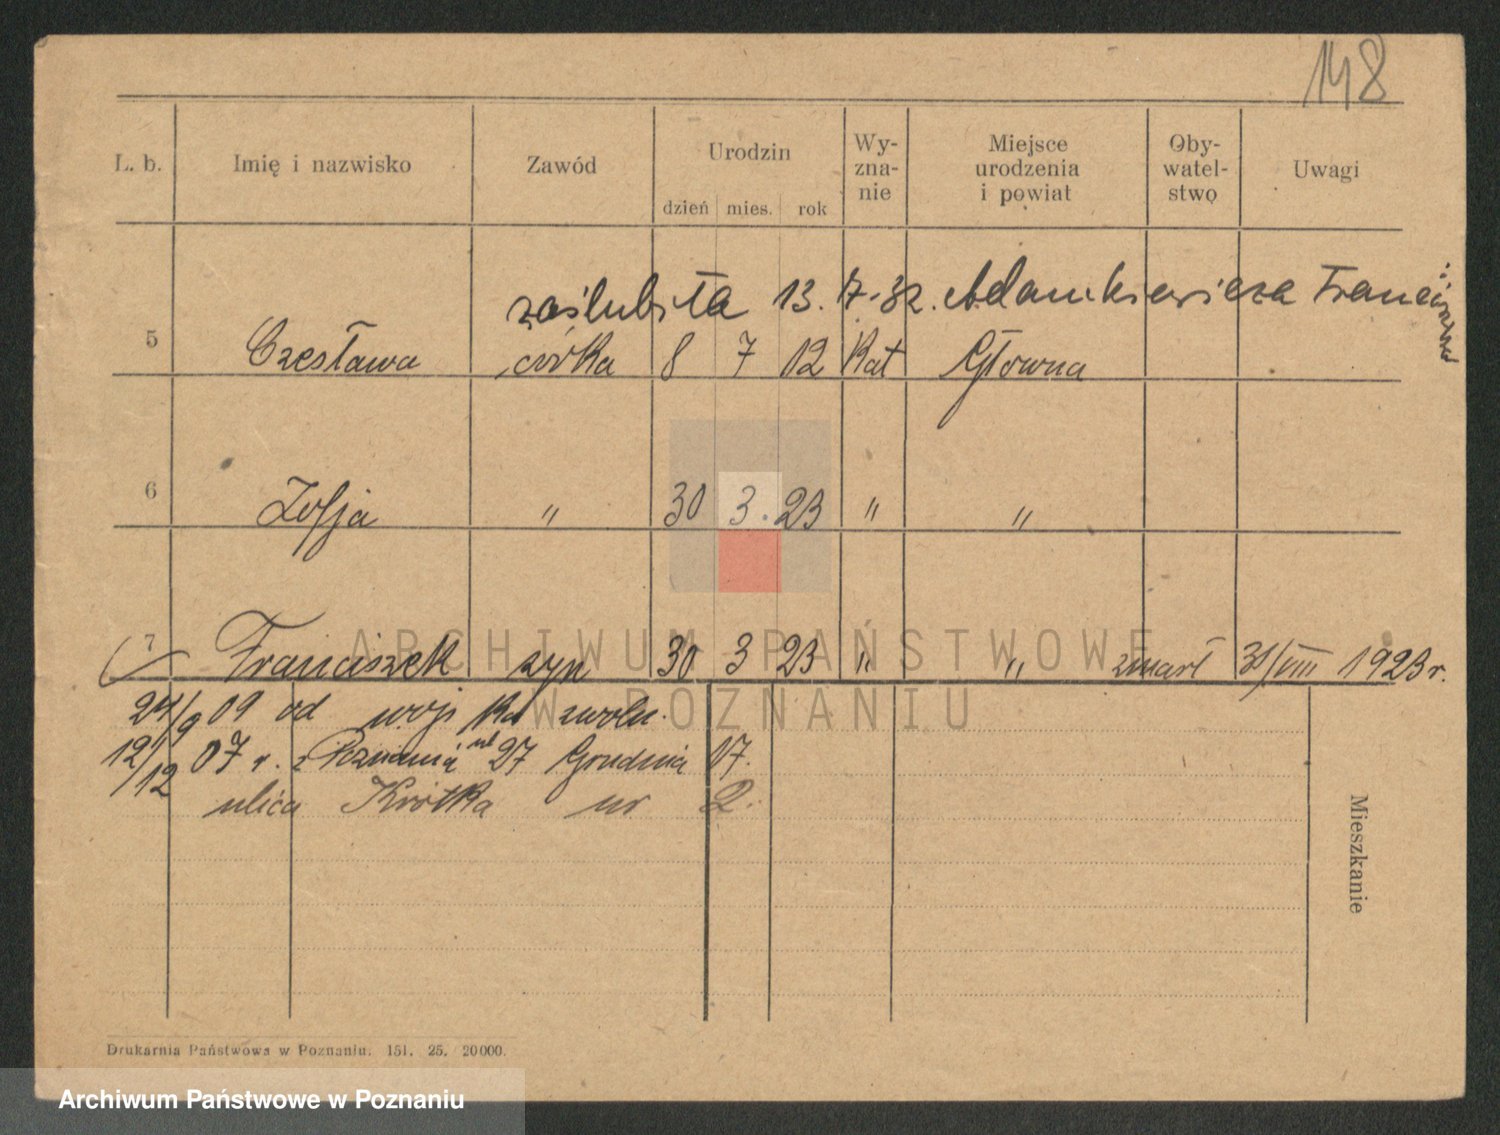 148
L. b. Imię i nazwisko Zawód Urodzin dzień mies. rok Wy-zna-nie Miejsce urodzenia i powiat Oby-watel-stwo Uwagi
zaślubiła 13. 7. 32. Adamkiewicza Franciszka
5 Czesława córka 8 7 12 Kat Głowna
6 Zofja " 30 3. 23 " "
7 Franciszek syn 30 3 23 " " zmarł 31/VIII 1923 r.
ARCHIWUM PAŃSTWOWE
W POZNANIU
24/9 09 od wojska zwoln.
12/12 07 r. z Poznania ul 27 Grudnia 17.
ulica Krótka nr 2.
Mieszkanie
Drukarnia Państwowa w Poznaniu. 151. 25. 20000.
Archiwum Państwowe w Poznaniu